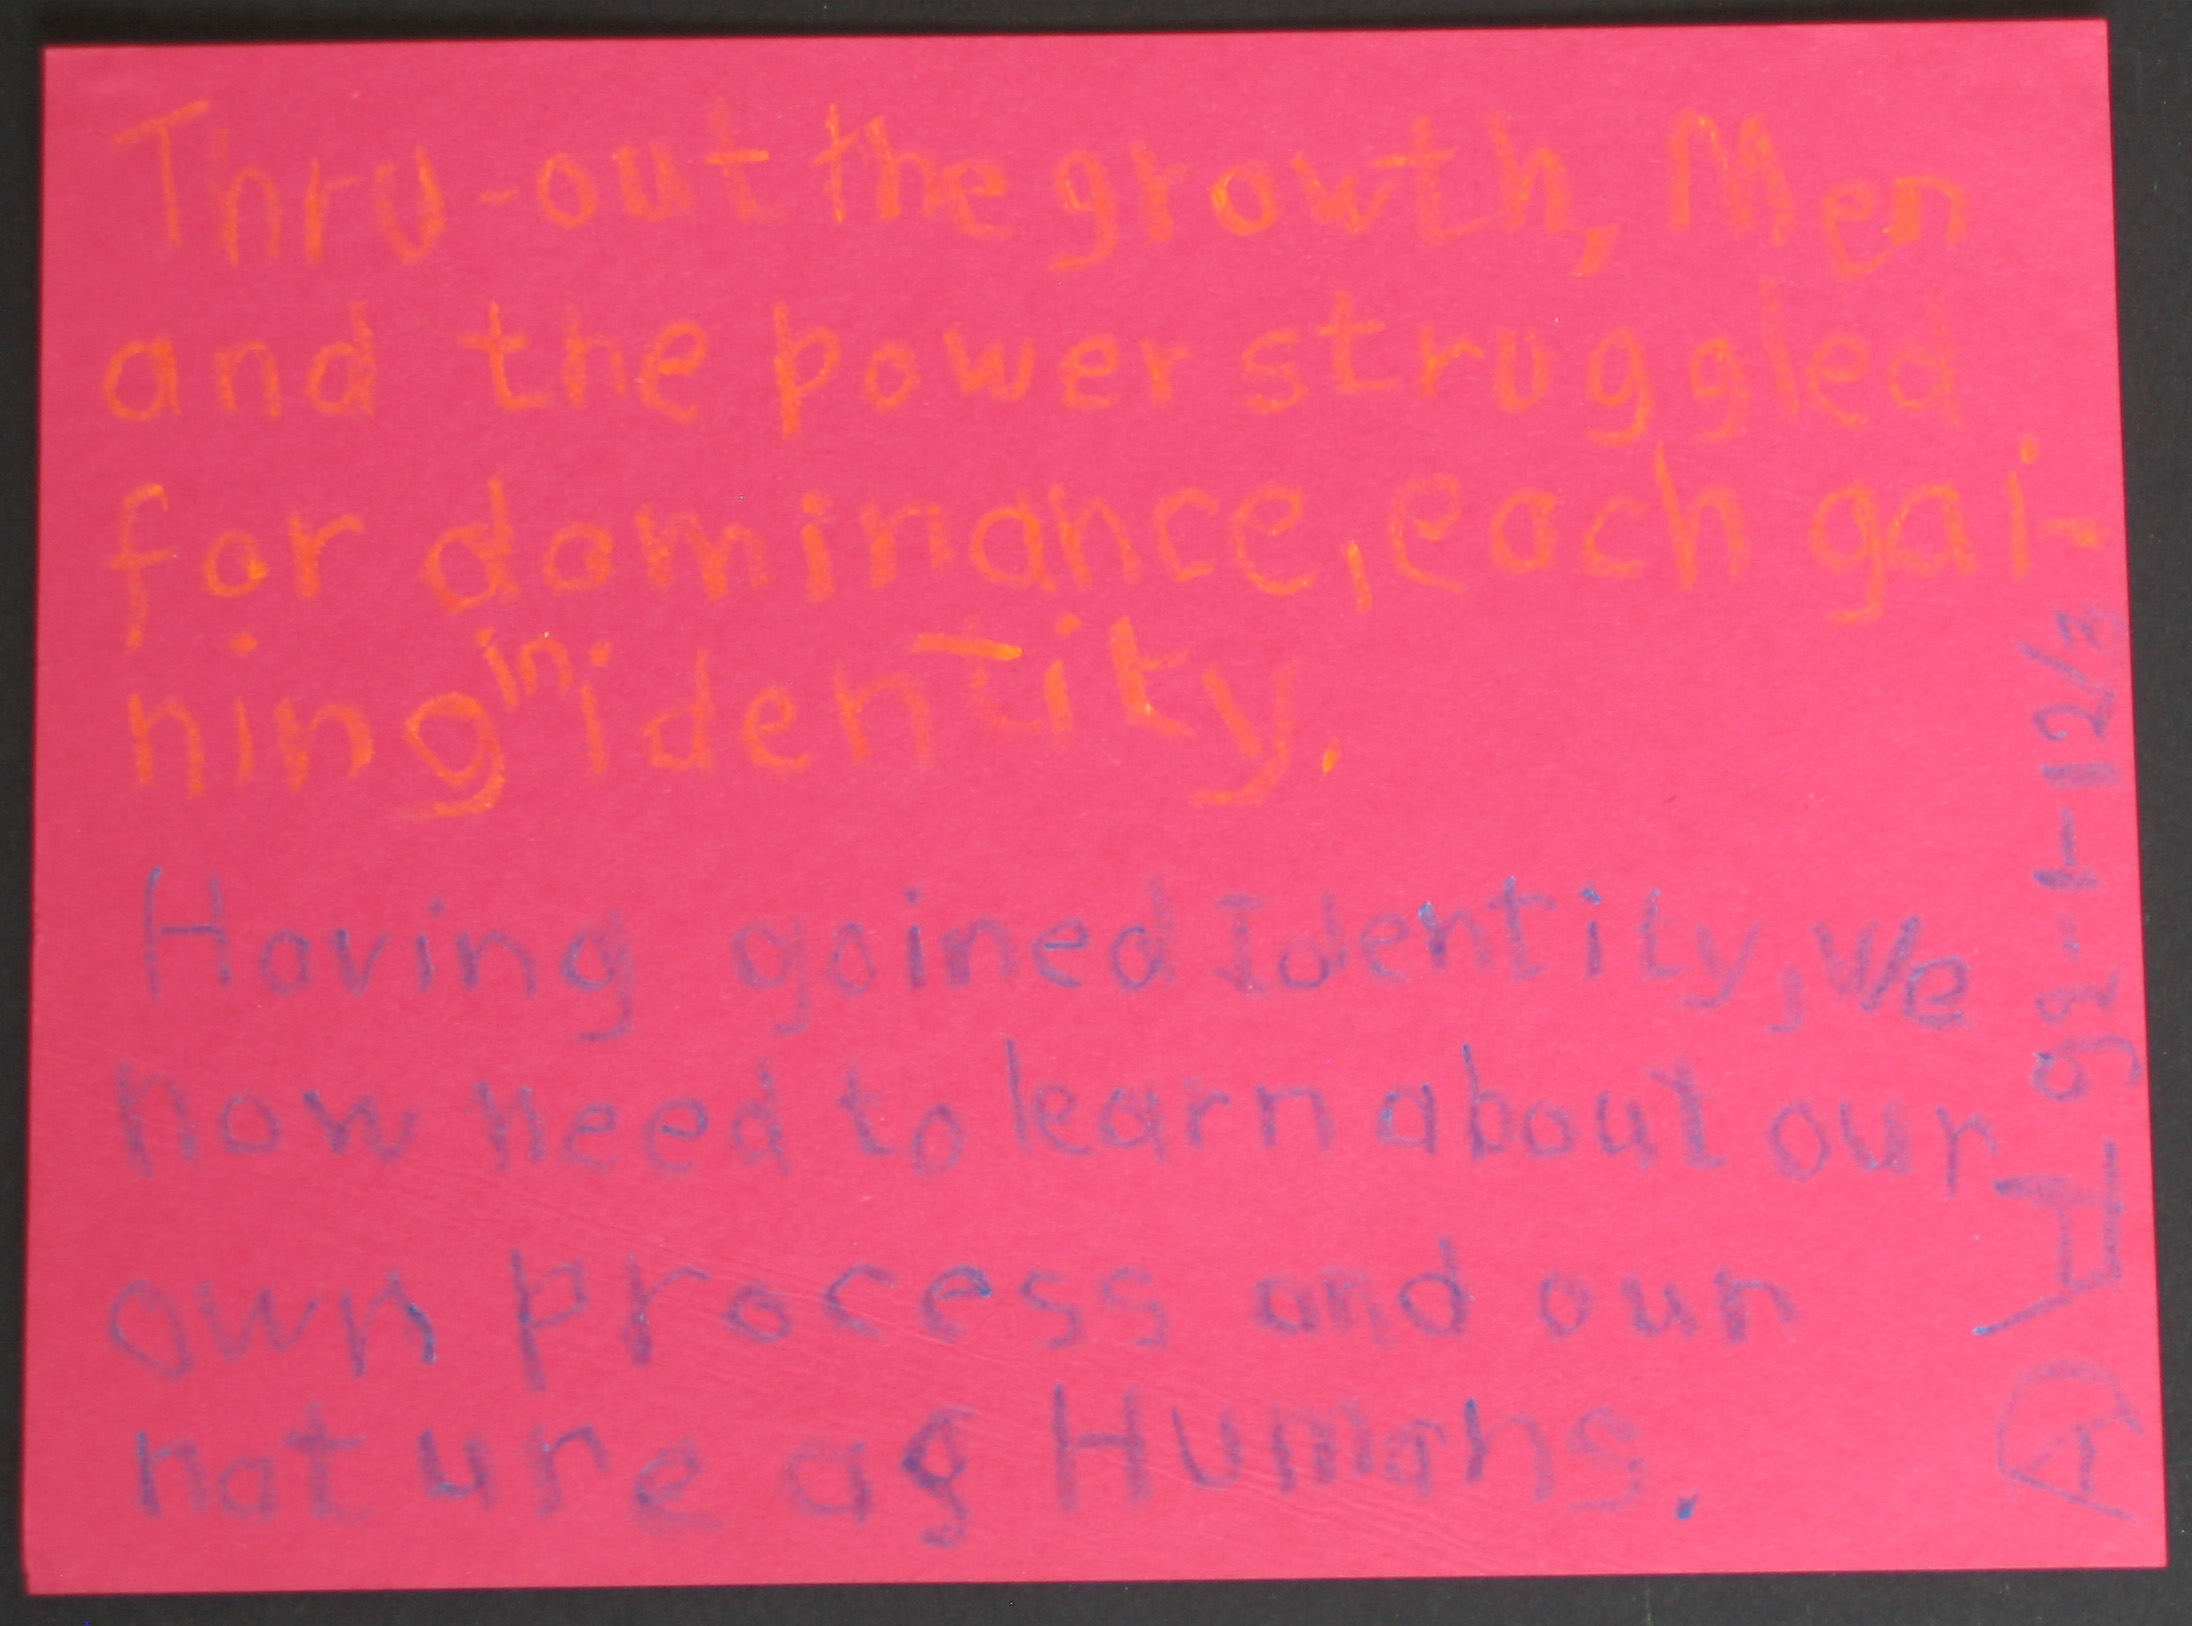 Thru-out the growth, Men
and the power struggled
for dominance, each gai-
ning in identity.
Having gained Identity, We
now need to learn about our
own process and our
nature as Humans.